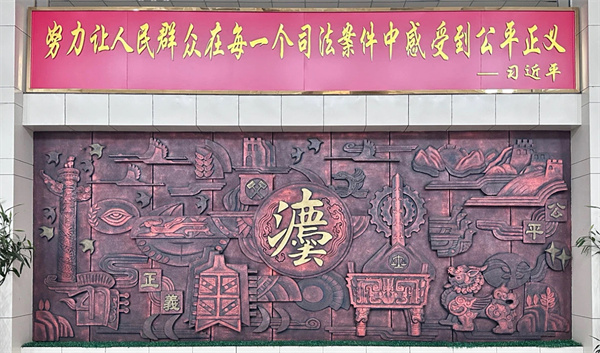 努力让人民群众在每一个司法案件中感受到公平正义
—习近平
灋
公平
正義